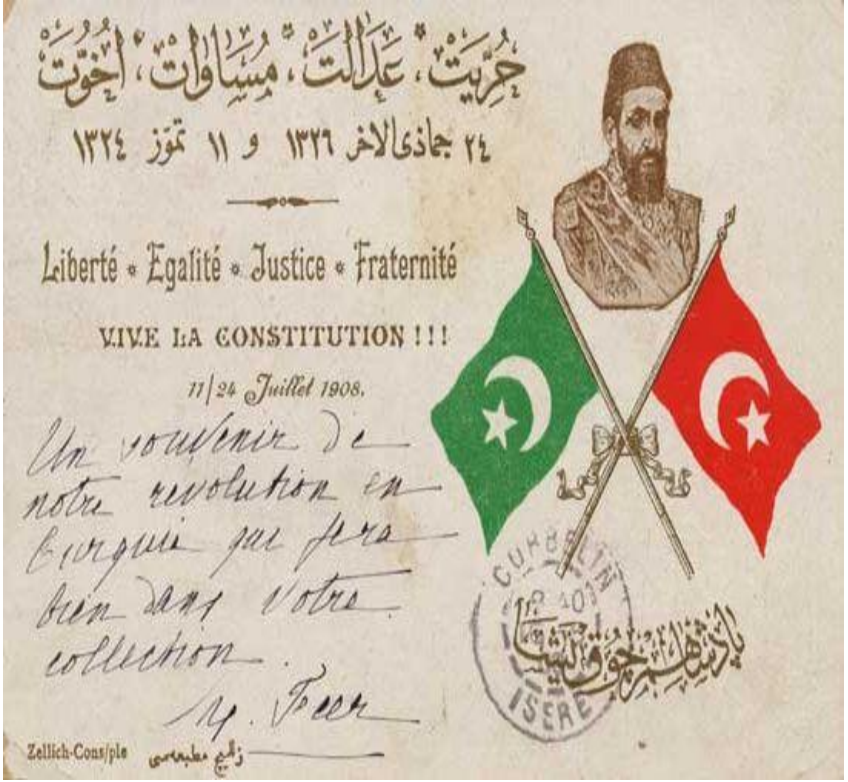 حُرِّيَتْ، عَدَالَتْ، مُسَاوَاتْ، أُخُوَّتْ
٢٤ جماذى الاخر ١٣٢٦ و ١١ تموز ١٣٢٤
Liberté * Egalité * Justice * Fraternité
VIVE LA CONSTITUTION !!!
11/24 Juillet 1908.
Un souvenir de
notre revolution en
Turquie qui fera
bien dans votre
collection.
پادشاهم چوق يشا
ISERE
Zellich-Cons/ple زلليچ مطبعه‌سى